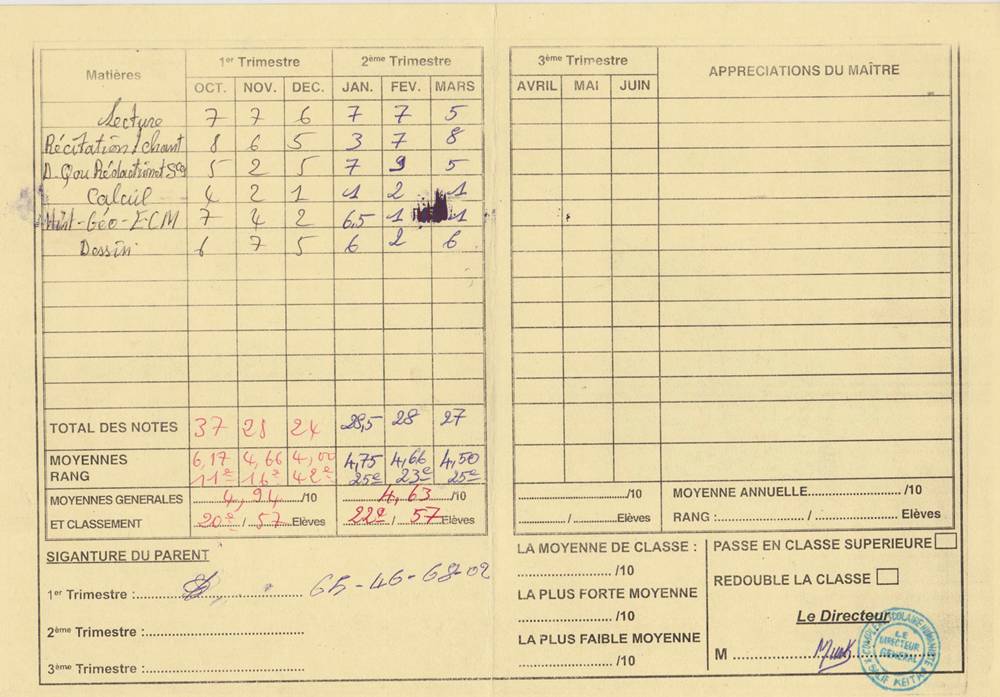 Matières 1er Trimestre 2ème Trimestre
OCT. NOV. DEC. JAN. FEV. MARS
Lecture 7 7 6 7 7 5
Récitation / chant 8 6 5 3 7 8
D. Q ou Rédaction et Sce 5 2 5 7 9 5
Calcul 4 2 1 1 2 1
Hist-Géo-ECM 7 4 2 6,5 1 1
Dessin 6 7 5 6 2 6
TOTAL DES NOTES 37 28 24 28,5 28 27
MOYENNES 6,17 4,66 4,00 4,75 4,66 4,50
RANG 11e 16e 42e 25e 23e 25e
MOYENNES GENERALES 4,94 /10 4,63 /10
ET CLASSEMENT 20e / 57 Elèves 22e / 57 Elèves
SIGANTURE DU PARENT
1er Trimestre :.......... 65-46-68-02
2ème Trimestre :..........
3ème Trimestre :..........
3ème Trimestre APPRECIATIONS DU MAÎTRE
AVRIL MAI JUIN
........../10 MOYENNE ANNUELLE.......... /10
.......... / ..........Elèves RANG :.......... / .......... Elèves
LA MOYENNE DE CLASSE :
.......... /10
LA PLUS FORTE MOYENNE
.......... /10
LA PLUS FAIBLE MOYENNE
.......... /10
PASSE EN CLASSE SUPERIEURE
REDOUBLE LA CLASSE
Le Directeur
M ..........
LE
DIRECTEUR
GENERAL
SALIF KEITA